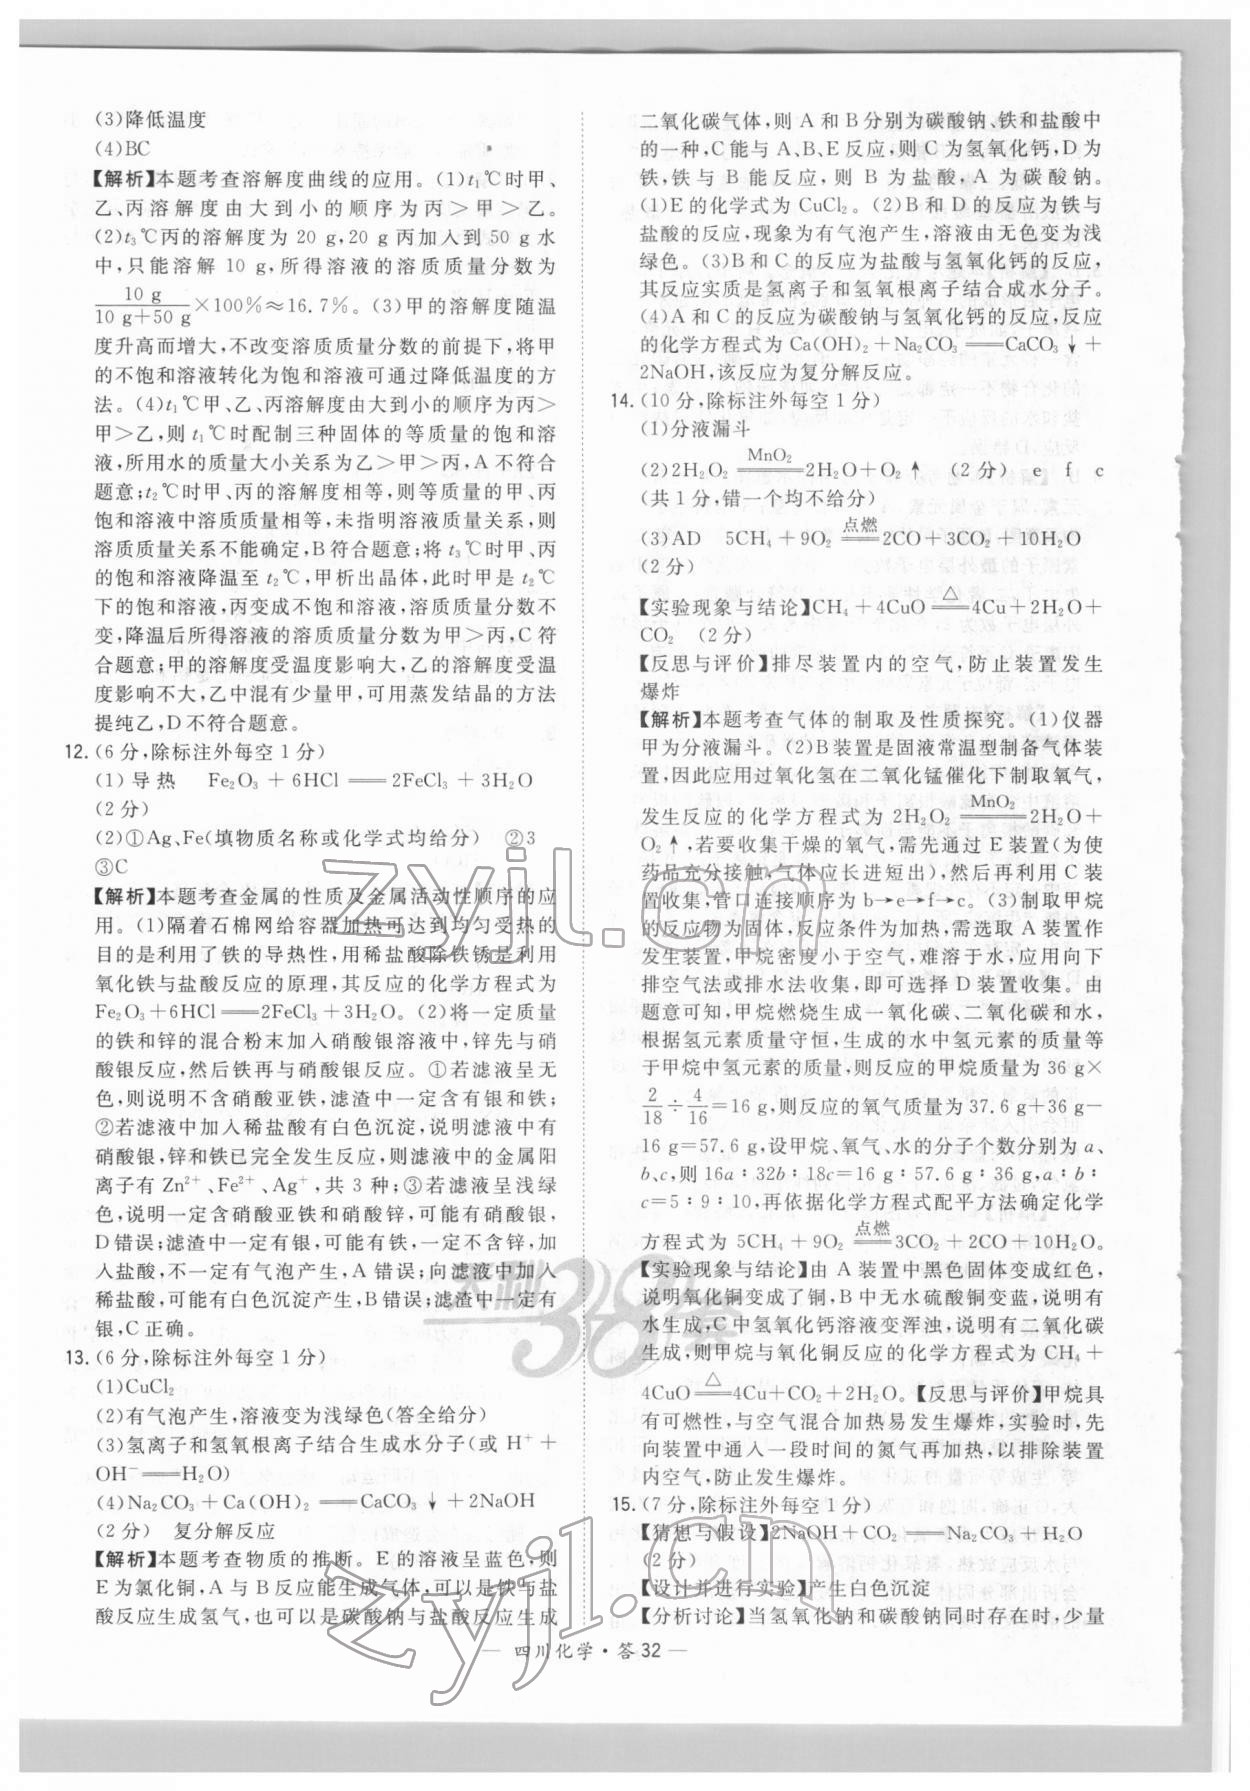 (3)降低温度
(4)BC
【解析】本题考查溶解度曲线的应用。(1)t₁℃时甲、
乙、丙溶解度由大到小的顺序为丙＞甲＞乙。
(2)t₃℃丙的溶解度为 20 g,20 g 丙加入到 50 g 水
中,只能溶解 10 g,所得溶液的溶质质量分数为
10 g/(10 g+50 g)×100%≈16.7%。(3)甲的溶解度随温
度升高而增大,不改变溶质质量分数的前提下,将甲
的不饱和溶液转化为饱和溶液可通过降低温度的方
法。(4)t₁℃甲、乙、丙溶解度由大到小的顺序为丙＞
甲＞乙,则 t₁℃时配制三种固体的等质量的饱和溶
液,所用水的质量大小关系为乙＞甲＞丙,A 不符合
题意;t₂℃时甲、丙的溶解度相等,则等质量的甲、丙
饱和溶液中溶质质量相等,未指明溶液质量关系,则
溶质质量关系不能确定,B 符合题意;将 t₃℃时甲、丙
的饱和溶液降温至 t₂℃,甲析出晶体,此时甲是 t₂℃
下的饱和溶液,丙变成不饱和溶液,溶质质量分数不
变,降温后所得溶液的溶质质量分数为甲＞丙,C 符
合题意;甲的溶解度受温度影响大,乙的溶解度受温
度影响不大,乙中混有少量甲,可用蒸发结晶的方法
提纯乙,D 不符合题意。
12. (6 分,除标注外每空 1 分)
(1) 导热 Fe₂O₃ + 6HCl ══ 2FeCl₃ + 3H₂O
(2 分)
(2)①Ag、Fe(填物质名称或化学式均给分) ②3
③C
【解析】本题考查金属的性质及金属活动性顺序的应
用。(1)隔着石棉网给容器加热可达到均匀受热的
目的是利用了铁的导热性,用稀盐酸除铁锈是利用
氧化铁与盐酸反应的原理,其反应的化学方程式为
Fe₂O₃+6HCl══2FeCl₃+3H₂O。(2)将一定质量
的铁和锌的混合粉末加入硝酸银溶液中,锌先与硝
酸银反应,然后铁再与硝酸银反应。①若滤液呈无
色,则说明不含硝酸亚铁,滤渣中一定含有银和铁;
②若滤液中加入稀盐酸有白色沉淀,说明滤液中有
硝酸银,锌和铁已完全发生反应,则滤液中的金属阳
离子有 Zn²⁺、Fe²⁺、Ag⁺,共 3 种;③若滤液呈浅绿
色,说明一定含硝酸亚铁和硝酸锌,可能有硝酸银,
D 错误;滤渣中一定有银,可能有铁,一定不含锌,加
入盐酸,不一定有气泡产生,A 错误;向滤液中加入
稀盐酸,可能有白色沉淀产生,B 错误;滤渣中一定有
银,C 正确。
13. (6 分,除标注外每空 1 分)
(1)CuCl₂
(2)有气泡产生,溶液变为浅绿色(答全给分)
(3)氢离子和氢氧根离子结合生成水分子(或 H⁺＋
OH⁻══H₂O)
(4)Na₂CO₃ + Ca(OH)₂ ══ CaCO₃↓ + 2NaOH
(2 分) 复分解反应
【解析】本题考查物质的推断。E 的溶液呈蓝色,则
E 为氯化铜,A 与 B 反应能生成气体,可以是铁与盐
酸反应生成氢气,也可以是碳酸钠与盐酸反应生成
二氧化碳气体,则 A 和 B 分别为碳酸钠、铁和盐酸中
的一种,C 能与 A、B、E 反应,则 C 为氢氧化钙,D 为
铁,铁与 B 能反应,则 B 为盐酸,A 为碳酸钠。
(1)E 的化学式为 CuCl₂。(2)B 和 D 的反应为铁与
盐酸的反应,现象为有气泡产生,溶液由无色变为浅
绿色。(3)B 和 C 的反应为盐酸与氢氧化钙的反应,
其反应实质是氢离子和氢氧根离子结合成水分子。
(4)A 和 C 的反应为碳酸钠与氢氧化钙的反应,反应
的化学方程式为 Ca(OH)₂+Na₂CO₃══CaCO₃↓+
2NaOH,该反应为复分解反应。
14. (10 分,除标注外每空 1 分)
(1)分液漏斗
(2)2H₂O₂ ══(MnO₂) 2H₂O+O₂↑ (2 分) e f c
(共 1 分,错一个均不给分)
(3)AD 5CH₄+9O₂ ══(点燃) 2CO+3CO₂+10H₂O
(2 分)
【实验现象与结论】CH₄+4CuO ══(△) 4Cu+2H₂O+
CO₂ (2 分)
【反思与评价】排尽装置内的空气,防止装置发生
爆炸
【解析】本题考查气体的制取及性质探究。(1)仪器
甲为分液漏斗。(2)B 装置是固液常温型制备气体装
置,因此应用过氧化氢在二氧化锰催化下制取氧气,
发生反应的化学方程式为 2H₂O₂ ══(MnO₂) 2H₂O+
O₂↑,若要收集干燥的氧气,需先通过 E 装置(为使
药品充分接触,气体应长进短出),然后再利用 C 装
置收集,管口连接顺序为 b→e→f→c。(3)制取甲烷
的反应物为固体,反应条件为加热,需选取 A 装置作
发生装置,甲烷密度小于空气,难溶于水,应用向下
排空气法或排水法收集,即可选择 D 装置收集。由
题意可知,甲烷燃烧生成一氧化碳、二氧化碳和水,
根据氢元素质量守恒,生成的水中氢元素的质量等
于甲烷中氢元素的质量,则反应的甲烷质量为 36 g×
2/18÷4/16=16 g,则反应的氧气质量为 37.6 g+36 g－
16 g=57.6 g,设甲烷、氧气、水的分子个数分别为 a、
b、c,则 16a∶32b∶18c=16 g∶57.6 g∶36 g,a∶b∶
c=5∶9∶10,再依据化学方程式配平方法确定化学
方程式为 5CH₄+9O₂ ══(点燃) 3CO₂+2CO+10H₂O。
【实验现象与结论】由 A 装置中黑色固体变成红色,
说明氧化铜变成了铜,B 中无水硫酸铜变蓝,说明有
水生成,C 中氢氧化钙溶液变浑浊,说明有二氧化碳
生成,则甲烷与氧化铜反应的化学方程式为 CH₄+
4CuO ══(△) 4Cu+CO₂+2H₂O。【反思与评价】甲烷具
有可燃性,与空气混合加热易发生爆炸,实验时,先
向装置中通入一段时间的氮气再加热,以排除装置
内空气,防止发生爆炸。
15. (7 分,除标注外每空 1 分)
【猜想与假设】2NaOH+CO₂══Na₂CO₃+H₂O
(2 分)
【设计并进行实验】产生白色沉淀
【分析讨论】当氢氧化钠和碳酸钠同时存在时,少量
— 四川化学·答 32 —
zyjl.cn
天利38套
zyjl.cn